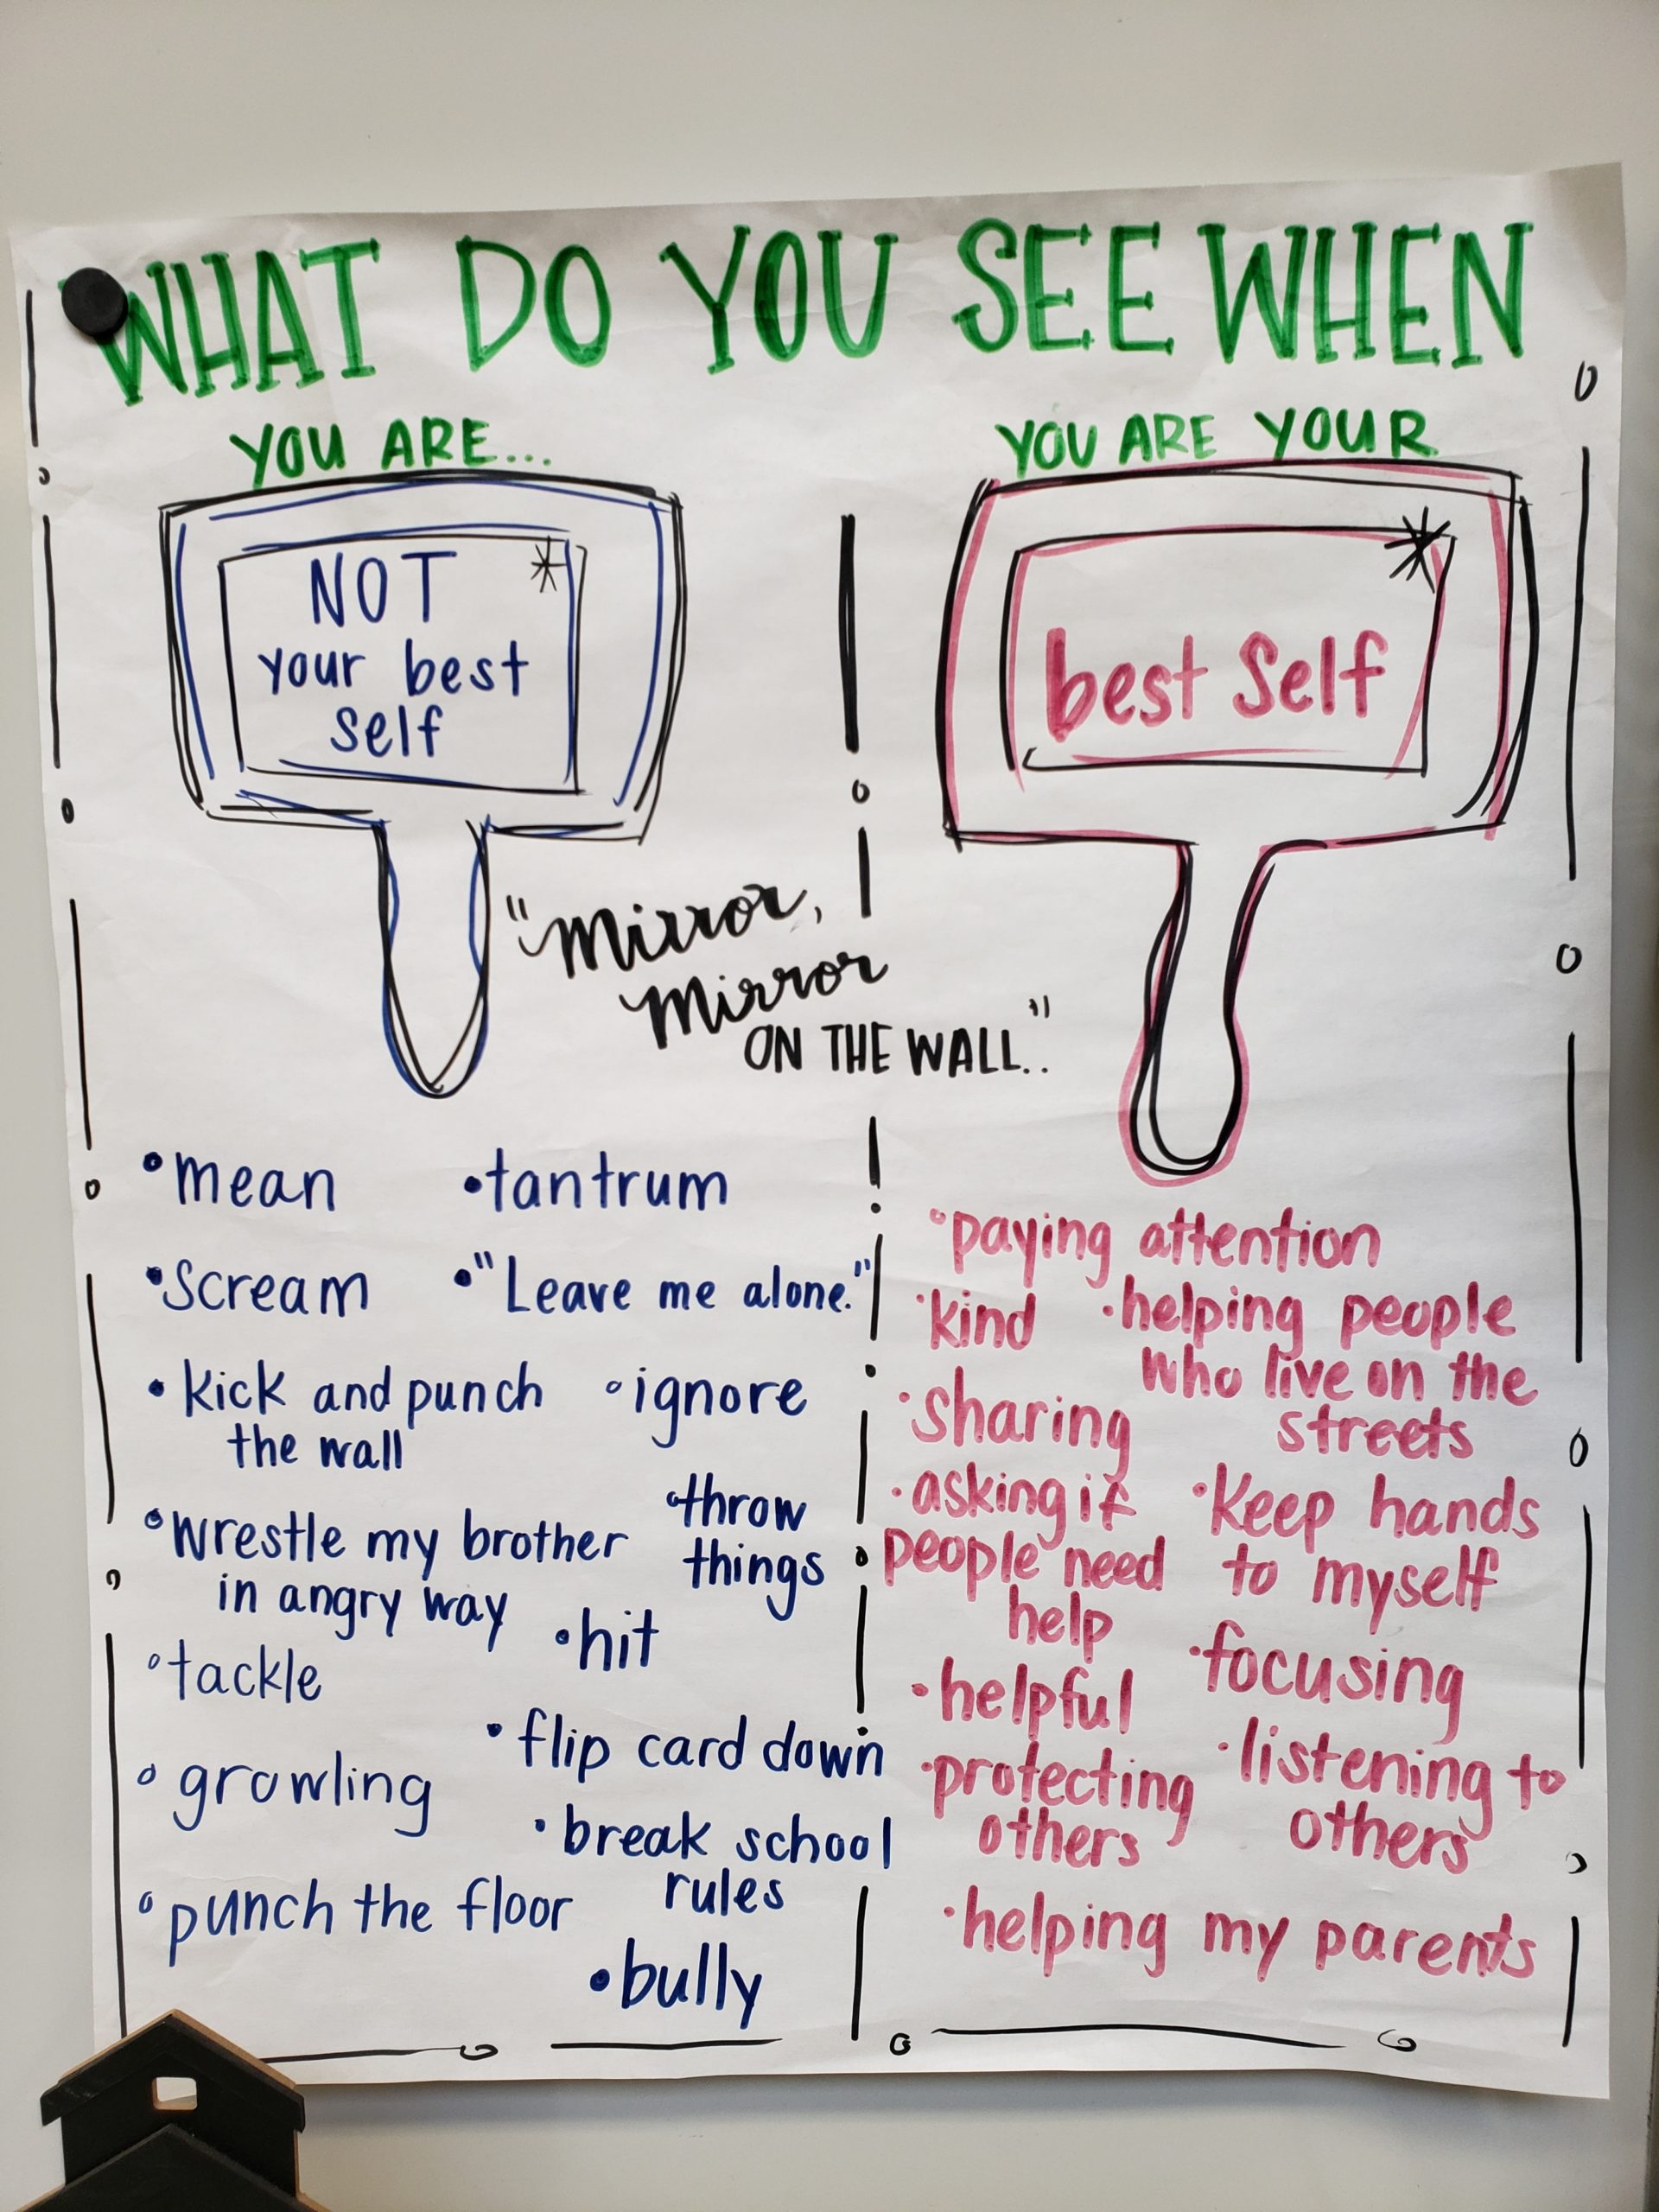 WHAT DO YOU SEE WHEN
YOU ARE...
NOT
your best
self
YOU ARE YOUR
best Self
"Mirror,
Mirror
ON THE WALL.."
•mean
•tantrum
•scream
•"Leave me alone."
•kick and punch
the wall
•ignore
•wrestle my brother
in angry way
•throw
things
•hit
•tackle
•flip card down
•growling
•break school
rules
•punch the floor
•bully
•paying attention
•kind
•helping people
who live on the
streets
•sharing
•asking if
people need
help
•keep hands
to myself
•helpful
•focusing
•protecting
others
•listening to
others
•helping my parents